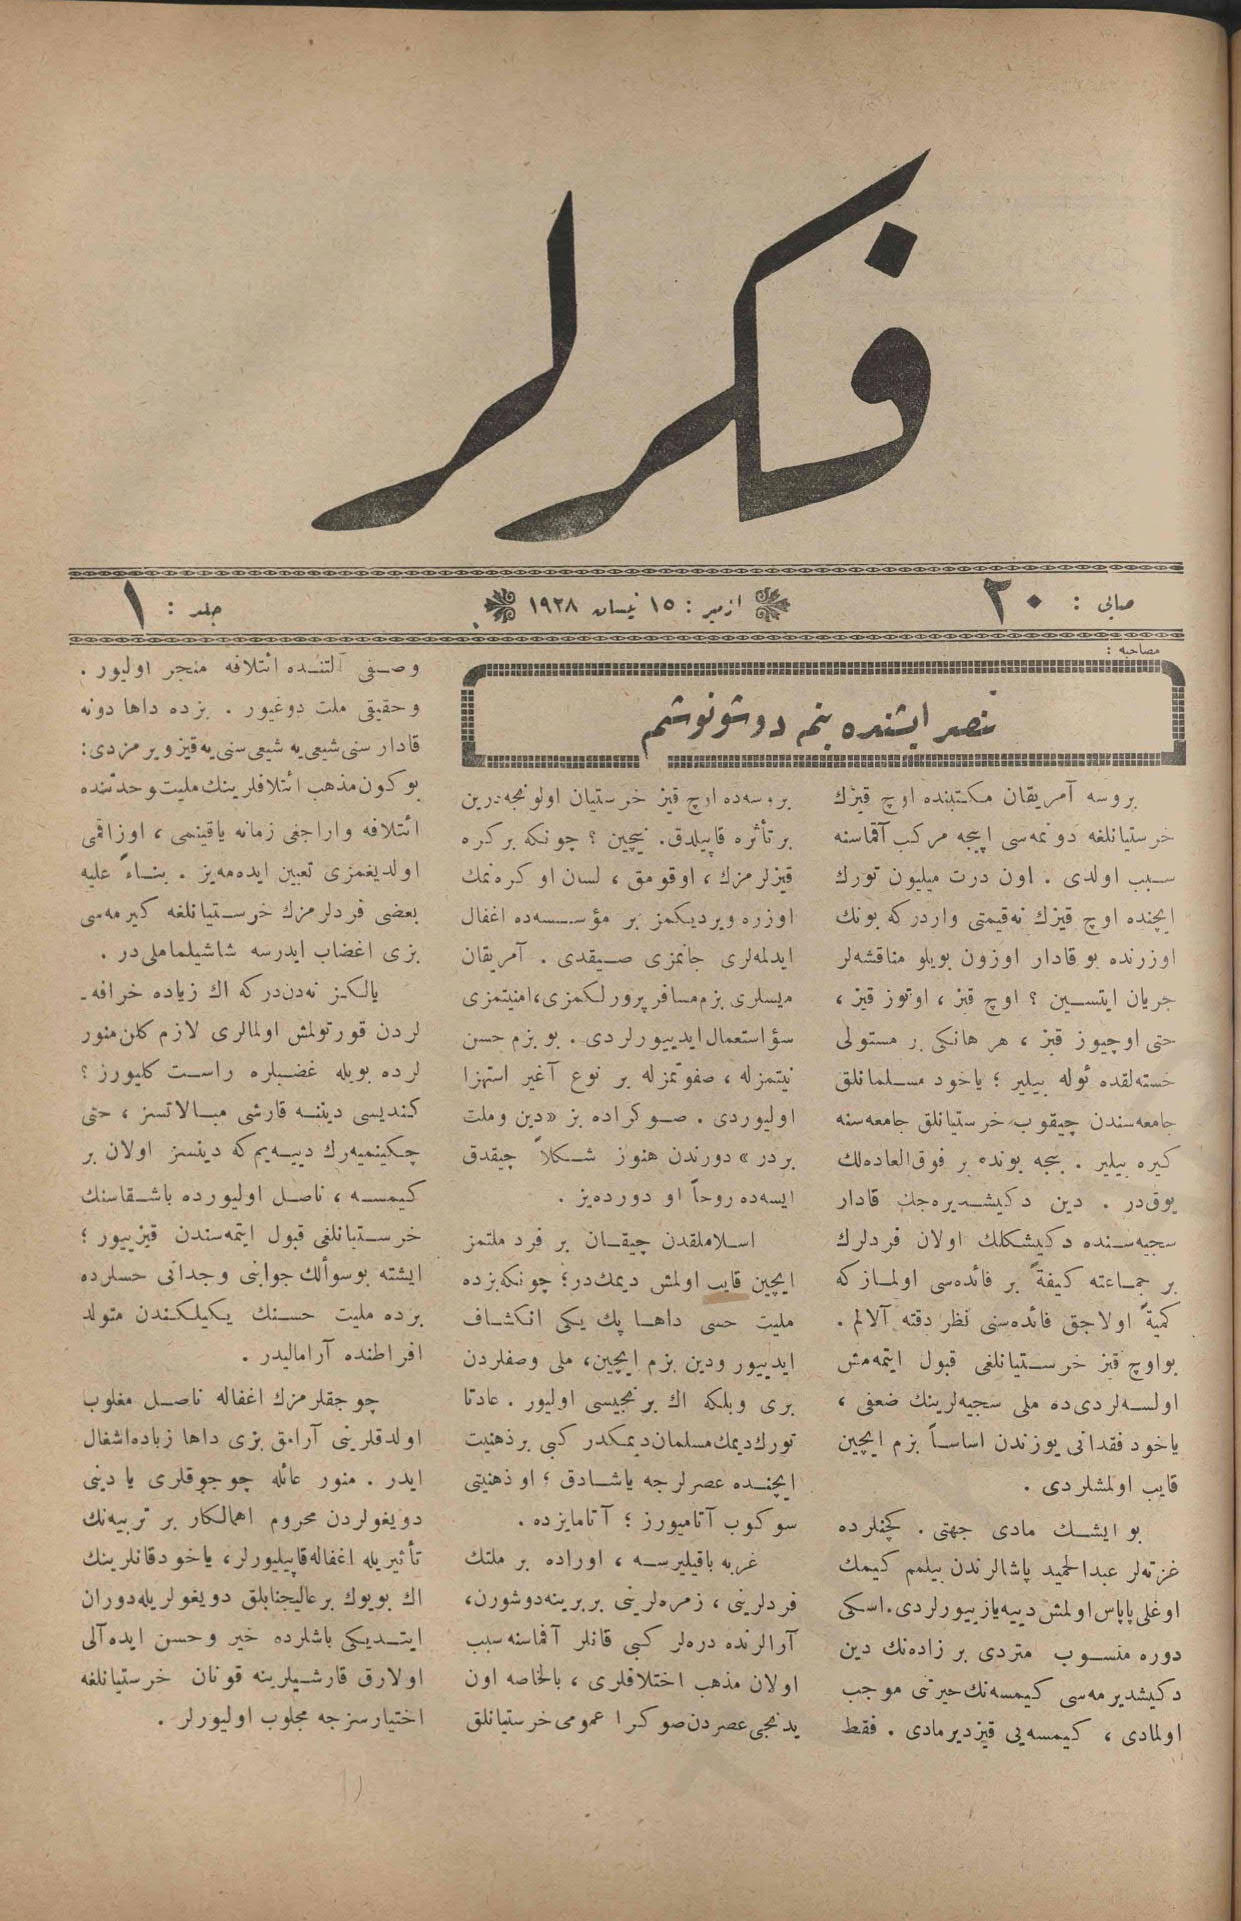 فكرلر
صایی : ٢٠
ازمیر : ١٥ نیسان ١٩٢٨
جلد : ١
مصاحبه :
تنصر ایشنده بنم دوشونوشم
بروسه آمریقان مكتبنده اوچ قیزك
خرستیانلغه دونمه‌سی اپیجه مركب آقماسنه
سبب اولدی . اون درت میلیون تورك
ایچنده اوچ قیزك نه‌قیمتی واردركه بونك
اوزرنده بو قادار اوزون بویلو مناقشه‌لر
جریان ایتسین ؟ اوچ قیز ، اوتوز قیز ،
حتی اوچیوز قیز ، هر هانكی بر مستولی
خسته‌لقده ئوله بیلیر ؛ یاخود مسلمانلق
جامعه‌سندن چیقوب خرستیانلق جامعه‌سنه
كیره بیلیر . بنجه بونده بر فوق‌العاده‌لك
یوق‌در . دین دكیشدیره‌جك قادار
سجیه‌سنده دكیشكلك اولان فردلرك
بر جماعته كیفةً بر فائده‌سی اولمازكه
كمیةً اولاجق فائده‌سنی نظر دقته آلالم .
بواوچ قیز خرستیانلغی قبول ایتمه‌مش
اولسه‌لردی‌ده ملی سجیه‌لرینك ضعفی ،
یاخود فقدانی یوزندن اساساً بزم ایچین
قایب اولمشلردی .
بو ایشك مادی جهتی . كچنلرده
غزته‌لر عبدالحمید پاشالرندن بیلمم كیمك
اوغلی پاپاس اولمش دییه‌یازییورلردی. اسكی
دوره منسوب متردی بر زاده‌نك دین
دكیشدیرمه‌سی كیمسه‌نك حیرتنی موجب
اولمادی ، كیمسه‌یی قیزدیرمادی . فقط
بروسه‌ده اوچ قیز خرستیان اولونجه‌درین
بر تأثره قاپیلدق. نیچین ؟ چونكه بر كره
قیزلرمزك ، اوقومق ، لسان اوكره‌نمك
اوزره ویردیكمز بر مؤسسه‌ده اغفال
ایدلمه‌لری جانمزی صیقدی . آمریقان
میسلری بزم مسافرپرورلكمزی، امنیتمزی
سؤاستعمال ایدییورلردی . بو بزم حسن
نیتمزله ، صفوتمزله بر نوع آغیر استهزا
اولیوردی . صوكراده بز « دین وملت
بردر » دورندن هنوز شكلاً چیقدق
ایسه‌ده روحاً او دورده‌یز .
اسلاملقدن چیقان بر فرد ملتمز
ایچین قایب اولمش دیمك‌در؛ چونكه بزده
ملیت حسی داها پك یكی انكشاف
ایدییور ودین بزم ایچین، ملی وصفلردن
بری وبلكه اك برنجیسی اولیور . عادتا
تورك دیمك مسلمان‌دیمكدر كبی برذهنیت
ایچنده عصرلرجه یاشادق ؛ او ذهنیتی
سوكوب آتامیورز ؛ آتامایزده .
غربه باقیلیرسه ، اوراده بر ملتك
فردلرینی ، زمره‌لرینی بربرینه‌دوشورن،
آرالرنده دره‌لر كبی قانلر آقماسنه سبب
اولان مذهب اختلاقلری ، بالخاصه اون
یدنجی عصردن صوكرا عمومی خرستیانلق
وصفی آلتنده ائتلافه منجر اولیور .
وحقیقی ملت دوغیور . بزده داها دونه
قادار سنی شیعی‌یه شیعی سنی‌یه قیز ویرمزدی:
بوكون مذهب ائتلافلرینك ملیت وحدتنده
ائتلافه واراجغی زمانه یاقینمی ، اوزاقمی
اولدیغمزی تعیین ایده‌مه‌یز . بناءً علیه
بعضی فردلرمزك خرستیانلغه كیرمه‌سی
بزی اغضاب ایدرسه شاشیلماملی‌در .
یالكز نه‌دن‌دركه اك زیاده خرافه‌ـ
لردن قورتولمش اولمالری لازم كلن منور
لرده بویله غضبلره راست كلیورز ؟
كندیسی دیننه قارشی مبالاتسز ، حتی
چكینمیه‌رك دییه‌یم كه دینسز اولان بر
كیمسه ، ناصل اولیورده باشقاسنك
خرستیانلغی قبول ایتمه‌سندن قیزییور ؛
ایشته بوسوألك جوابنی وجدانی حسلرده
بزده ملیت حسنك یكیلكندن متولد
افراطنده آرامالیدر .
چوجقلرمزك اغفاله ناصل مغلوب
اولدقلرینی آرامق بزی داها زیاده‌اشغال
ایدر . منور عائله چوجوقلری یا دینی
دویغولردن محروم اهمالكار بر تربیه‌نك
تأثیریله اغفاله‌قاپیلیورلر، یاخودقانلرینك
اك بویوك برعالیجنابلق دویغولریله‌دوران
ایتدیكی باشلرده خیر وحسن ایده‌آلی
اولارق قارشیلرینه قونان خرستیانلغه
اختیارسزجه مجلوب اولیورلر .